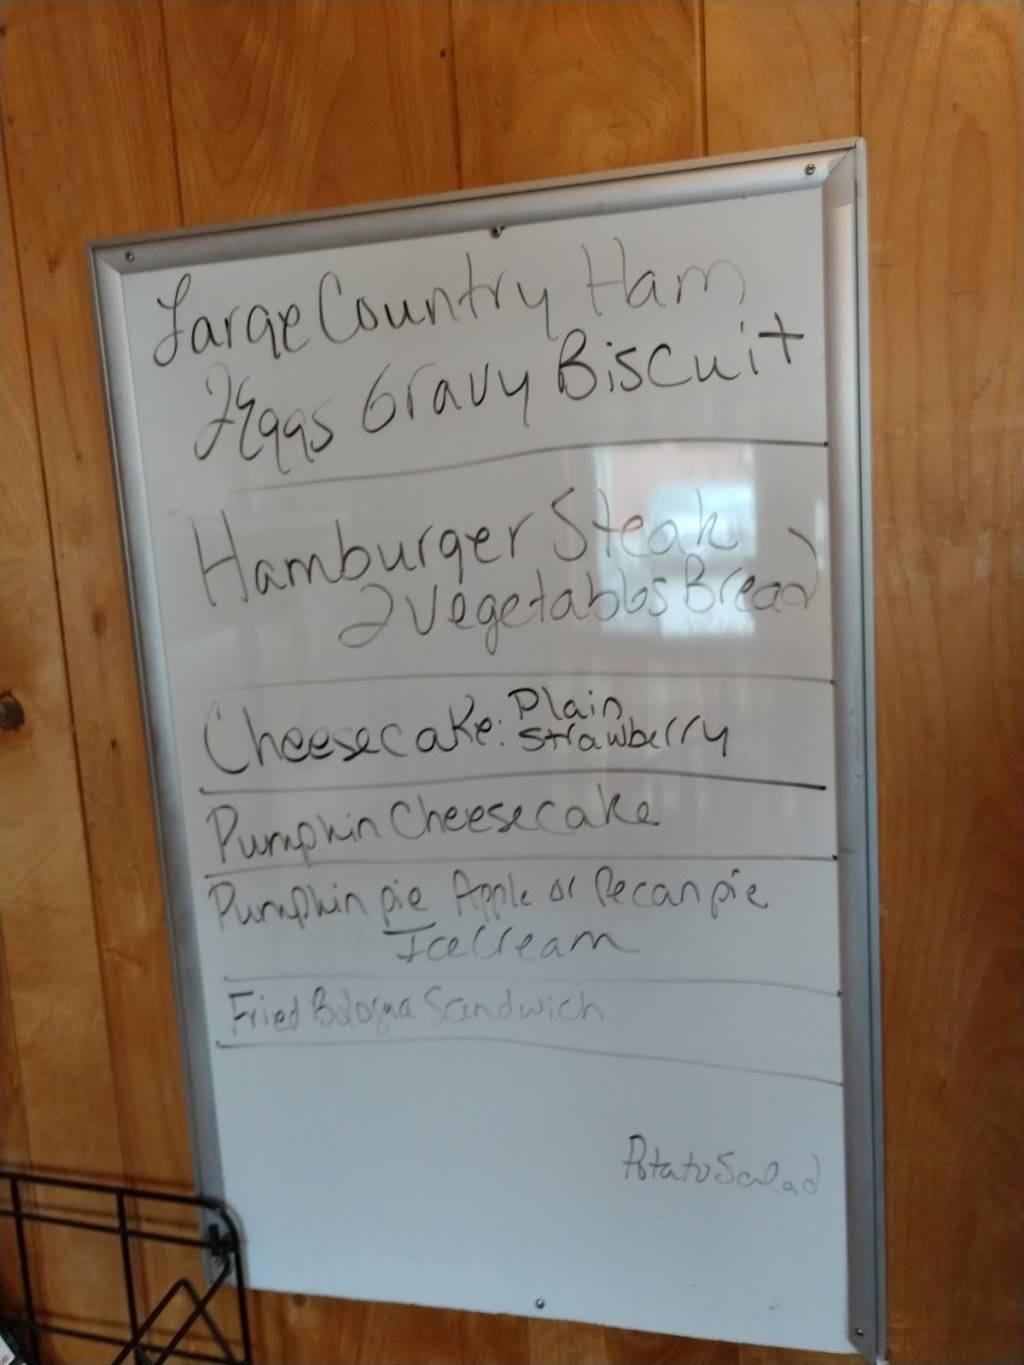 Large Country Ham
2 Eggs Gravy Biscuit
Hamburger Steak
2 Vegetables Bread
Cheesecake: Plain
Strawberry
Pumpkin Cheesecake
Pumpkin pie Apple or Pecan pie
Ice Cream
Fried Bologna Sandwich
Potato Salad